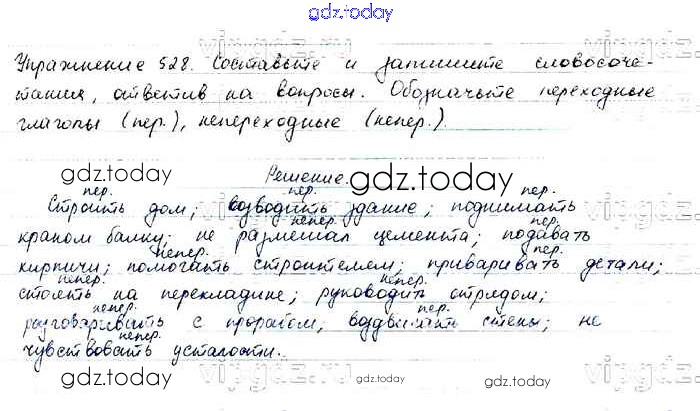 gdz.today
Упражнение 528. Составьте и запишите словосоче-
тания, ответив на вопросы. Обозначьте переходные
глаголы (пер.), непереходные (непер.).
gdz.today Решение. gdz.today
пер. пер. пер.
Строить дом; возводить здание; поднимать
непер. пер.
краном балку; не размешал цемента; подавать
непер. пер.
кирпичи; помогать строителям; приваривать детали;
непер. непер.
стоять на перекладине; руководить отрядом;
непер. пер.
разговаривать с прорабом; воздвигать стены; не
непер.
чувствовать усталости.
gdz.today gdz.today gdz.today
vipgdz.ru